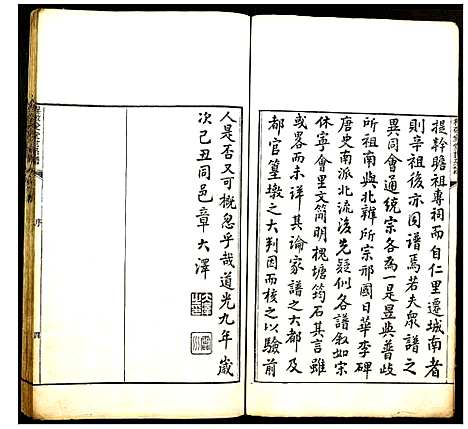 提幹瞻祖專祠而自仁里遷城南者
則辛祖後亦同譜焉若夫衆譜之
異同會通統宗各爲一是昱與普歧
所祖南與北韓所宗祁國日華李碑
唐史南派北流後先疑似各譜叙如宗
休寧會里文簡明槐塘筠石其言雖
或畧而未詳其論家譜之大都及
都官篁墩之大判因而核之以驗前
人是否又可概忽乎哉道光九年歲
次己丑同邑章大澤
序
四